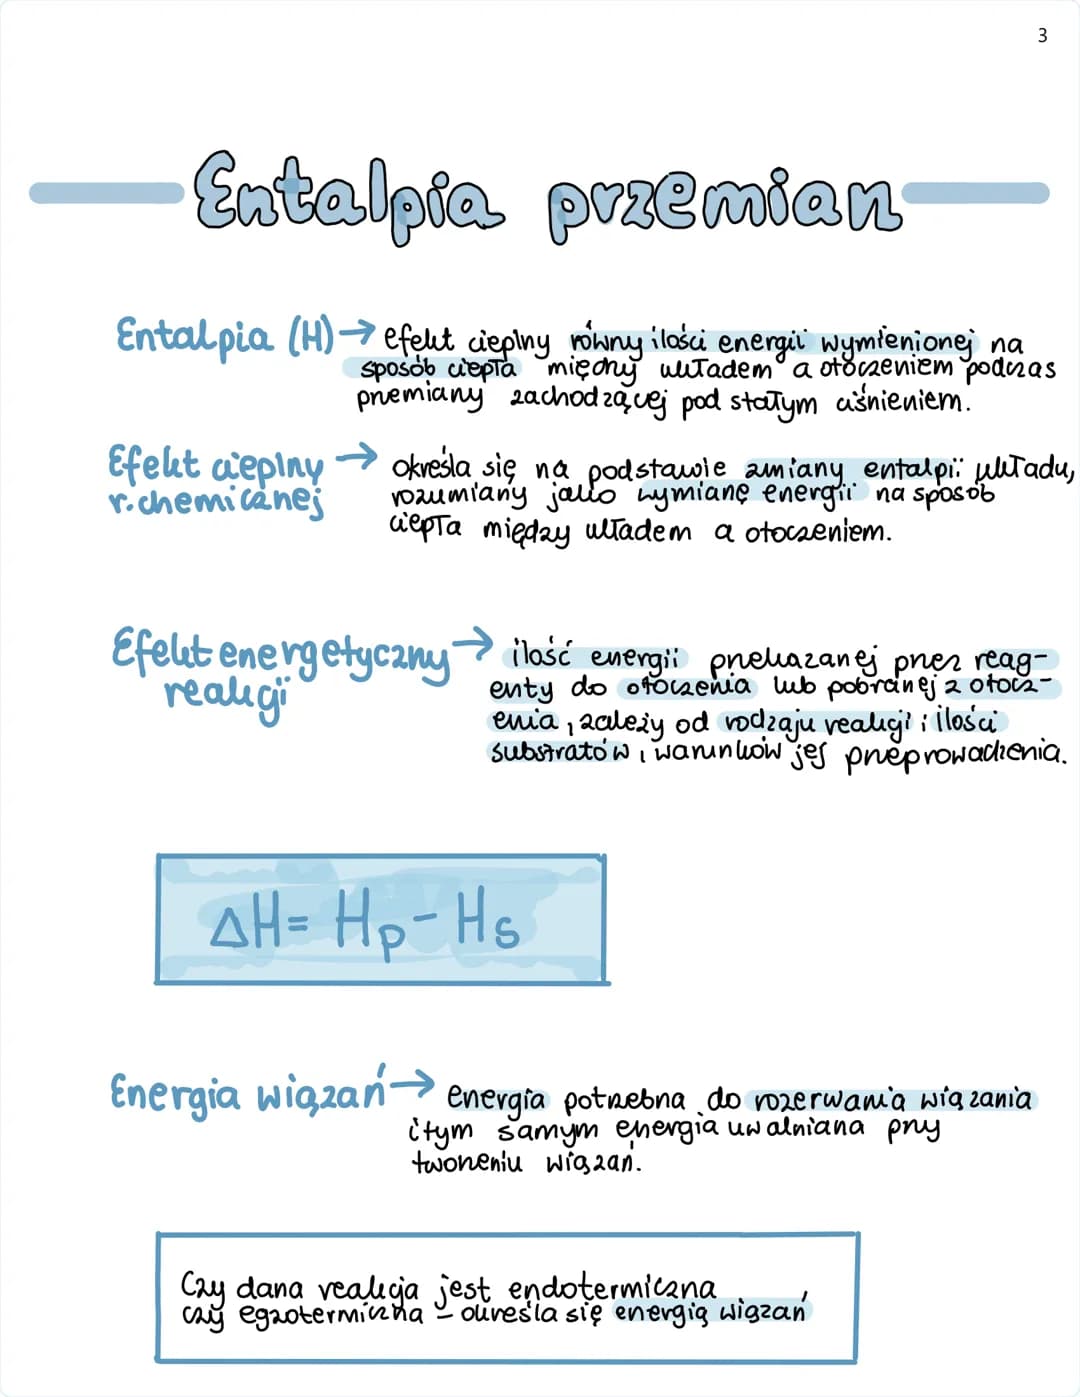 3
Entalpia przemian
Entalpia (H) → efekt cieplny równy ilości energii wymienionej na
sposób ciepła między układem a otoczeniem podczas
przemiany zachodzącej pod stałym ciśnieniem.
Efekt cieplny → określa się na podstawie zmiany entalpii układu,
r. chemicznej rozumiany jako wymianę energii na sposób
ciepła między układem a otoczeniem.
Efekt energetyczny → ilość energii przekazanej przez reag-
reakcji enty do otoczenia lub pobranej z otocz-
enia, zależy od rodzaju reakcji i ilości
substratów, warunków jej przeprowadzenia.
ΔH = Hp - Hs
Energia wiązań → energia potrzebna do rozerwania wiązania
i tym samym energia uwalniana przy
tworzeniu wiązań.
Czy dana reakcja jest endotermiczna
czy egzotermiczna - określa się energią wiązań